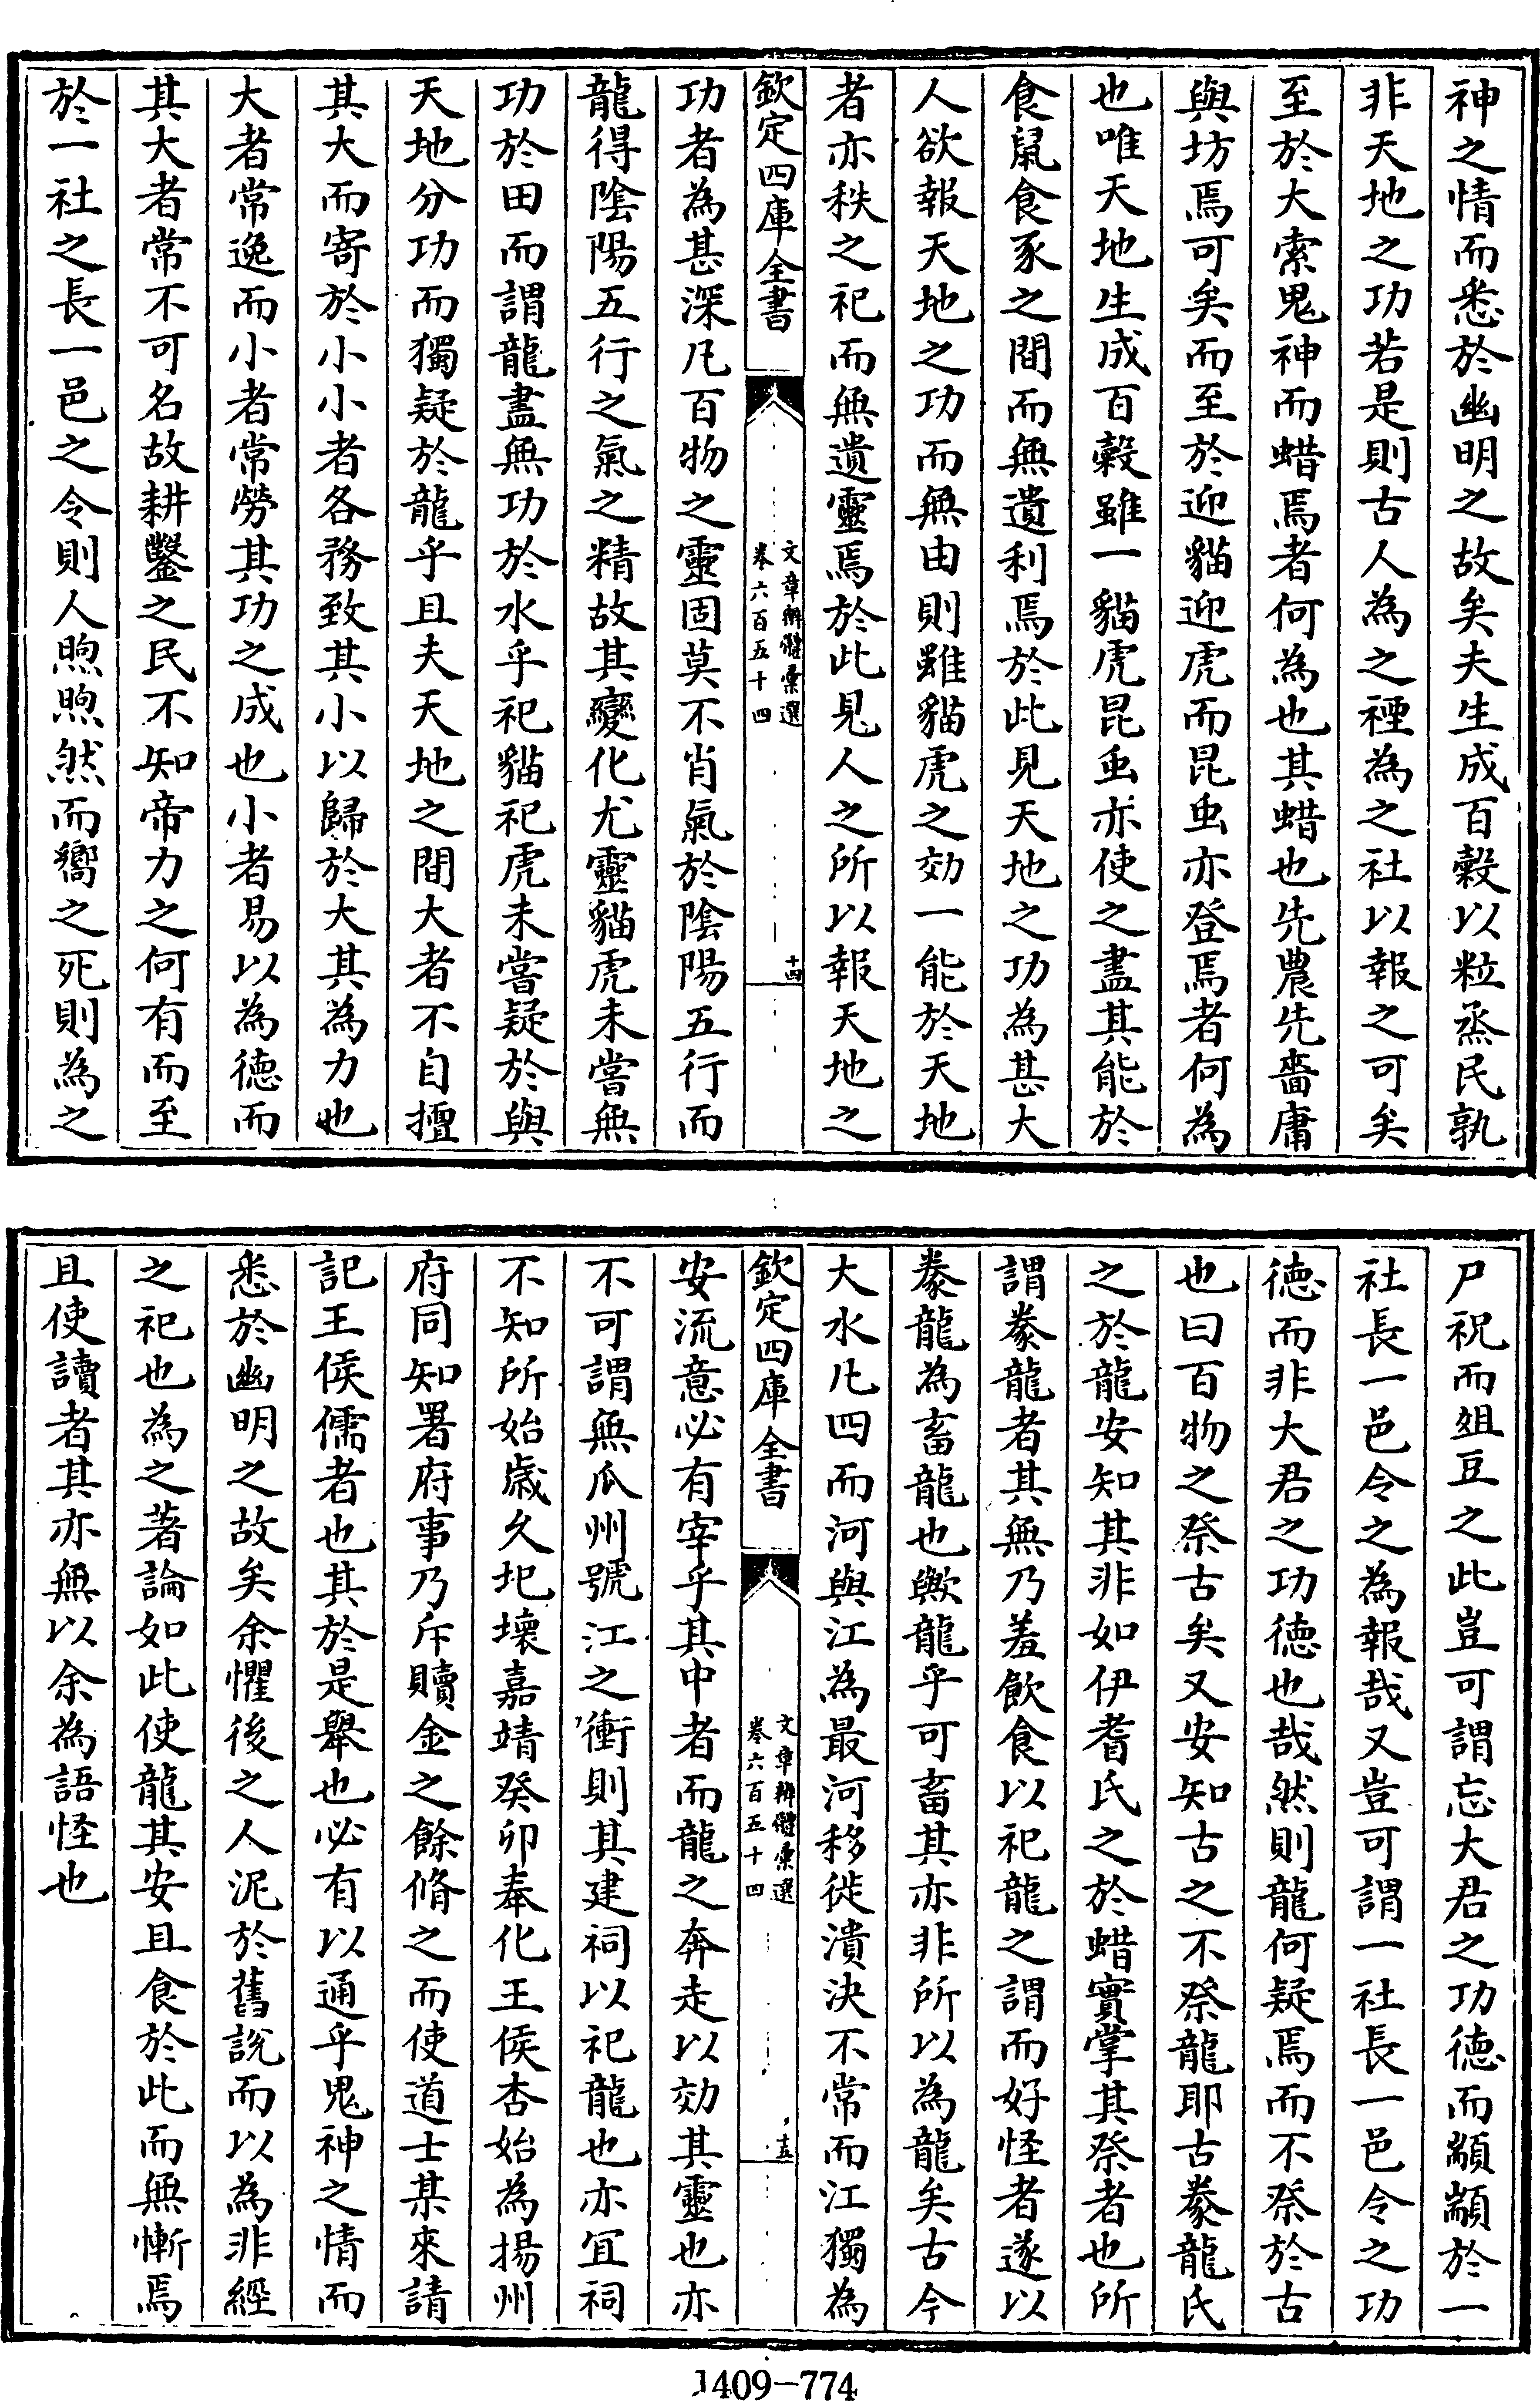 神之情而悉於幽明之故矣夫生成百穀以粒烝民孰
非天地之功若是則古人為之禋為之社以報之可矣
至於大索鬼神而蜡焉者何為也其蜡也先農先嗇庸
與坊焉可矣而至於迎貓迎虎而昆虫亦登焉者何為
也唯天地生成百穀雖一貓虎昆虫亦使之盡其能於
食鼠食豕之間而無遺利焉於此見天地之功為甚大
人欲報天地之功而無由則雖貓虎之効一能於天地
者亦秩之祀而無遺靈焉於此見人之所以報天地之
欽定四庫全書
文章辨體彙選
卷六百五十四
十四
功者為甚深凡百物之靈固莫不肖氣於陰陽五行而
龍得陰陽五行之氣之精故其變化尤靈貓虎未嘗無
功於田而謂龍盡無功於水乎祀貓祀虎未嘗疑於與
天地分功而獨疑於龍乎且夫天地之間大者不自擅
其大而寄於小小者各務致其小以歸於大其為力也
大者常逸而小者常勞其功之成也小者易以為德而
其大者常不可名故耕鑿之民不知帝力之何有而至
於一社之長一邑之令則人煦煦然而嚮之死則為之
尸祝而俎豆之此豈可謂忘大君之功徳而顓顓於一
社長一邑令之為報哉又豈可謂一社長一邑令之功
徳而非大君之功徳也哉然則龍何疑焉而不祭於古
也曰百物之祭古矣又安知古之不祭龍耶古豢龍氏
之於龍安知其非如伊耆氏之於蜡實掌其祭者也所
謂豢龍者其無乃羞飲食以祀龍之謂而好怪者遂以
豢龍為畜龍也歟龍乎可畜其亦非所以為龍矣古今
大水凡四而河與江為最河移徙潰決不常而江獨為
欽定四庫全書
文章辨體彙選
卷六百五十四
十五
安流意必有宰乎其中者而龍之奔走以効其靈也亦
不可謂無瓜州號江之衝則其建祠以祀龍也亦宜祠
不知所始歲久圮壞嘉靖癸卯奉化王侯杏始為揚州
府同知署府事乃斥贖金之餘脩之而使道士某來請
記王侯儒者也其於是舉也必有以通乎鬼神之情而
悉於幽明之故矣余懼後之人泥於舊說而以為非經
之祀也為之著論如此使龍其安且食於此而無慚焉
且使讀者其亦無以余為語怪也
1409-774